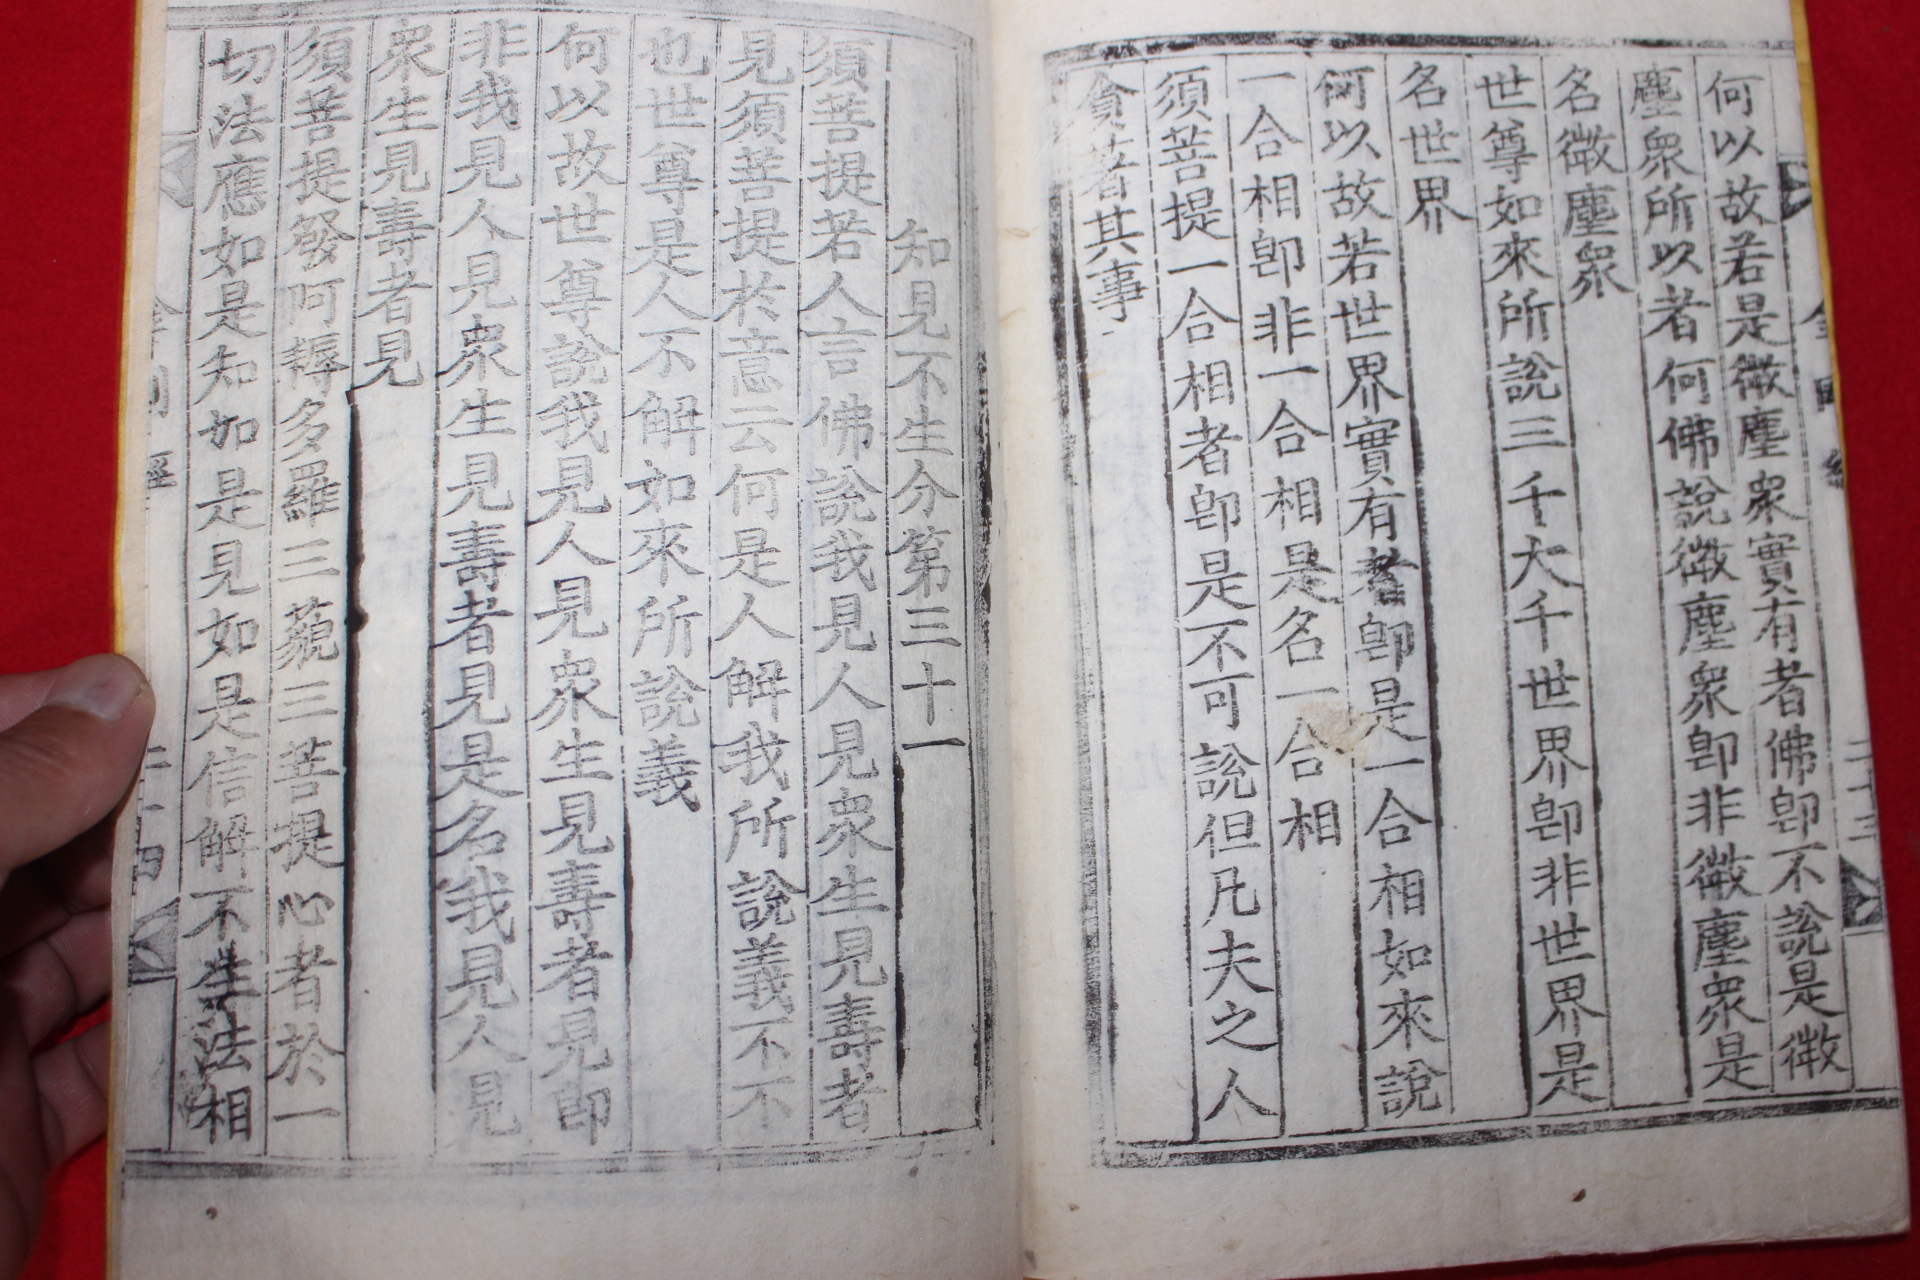 何以故若是微塵衆實有者佛卽不說是微
塵衆所以者何佛說微塵衆卽非微塵衆是
名微塵衆
世尊如來所說三千大千世界卽非世界是
名世界
何以故若世界實有者卽是一合相如來說
一合相卽非一合相是名一合相
須菩提一合相者卽是不可說但凡夫之人
貪著其事
知見不生分第三十一
須菩提若人言佛說我見人見衆生見壽者
見須菩提於意云何是人解我所說義不不
也世尊是人不解如來所說義
何以故世尊說我見人見衆生見壽者見卽
非我見人見衆生見壽者見是名我見人見
衆生見壽者見
須菩提發阿耨多羅三藐三菩提心者於一
切法應如是知如是見如是信解不生法相